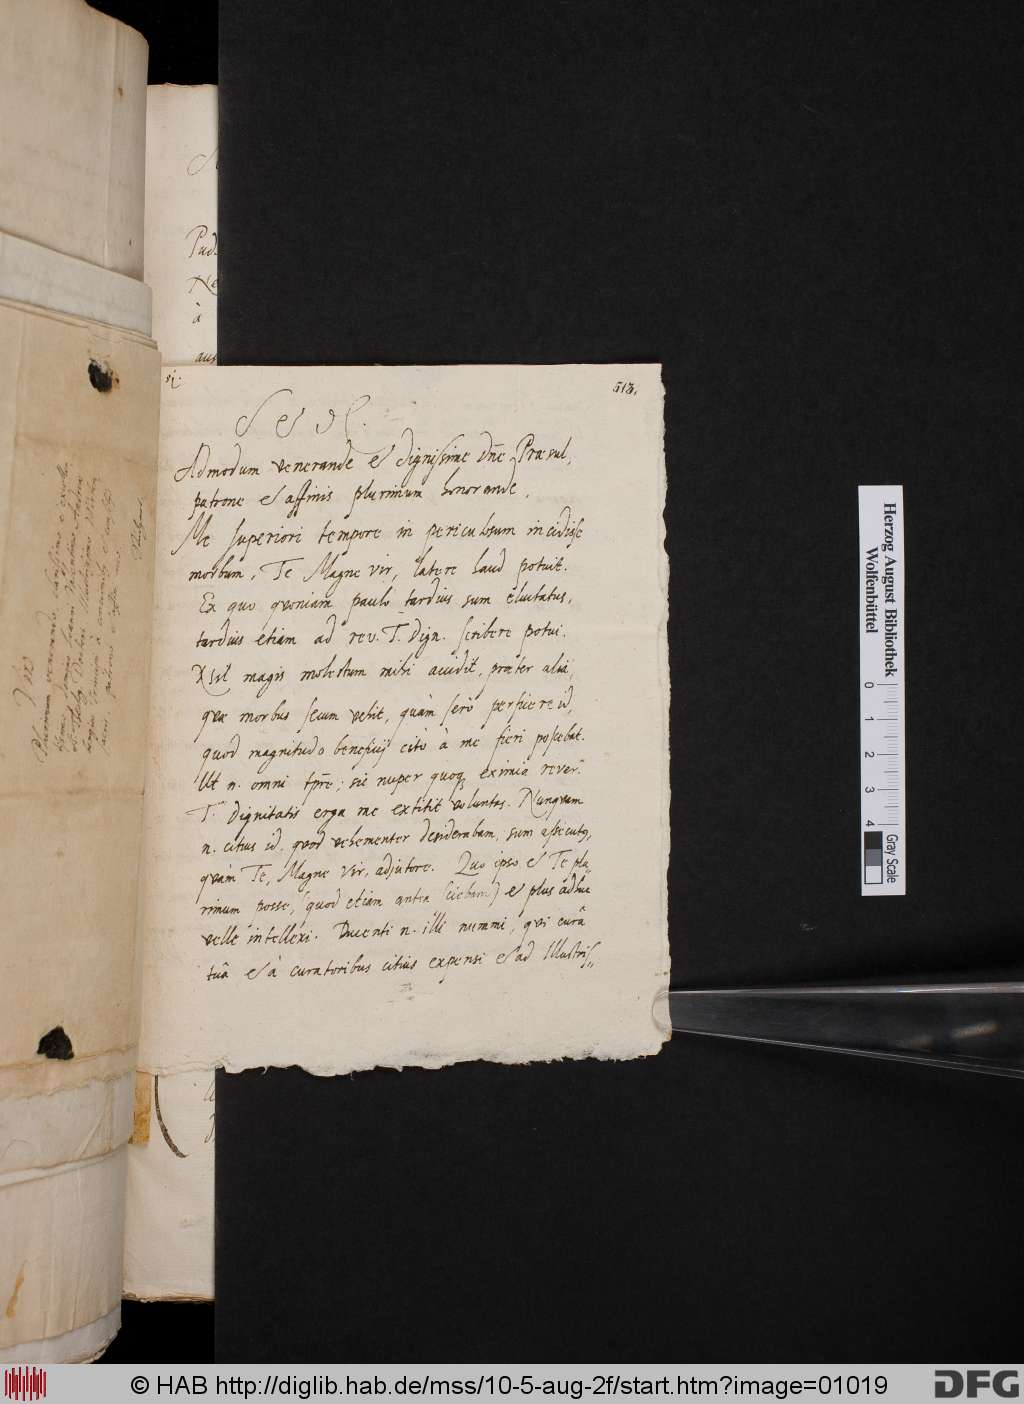 513.
S E S
Admodum venerande et dignissime Dn̄e Præsul,
patrone et affinis plurimum honorande,
Me superiori tempore in periculosum incidisse
morbum, Te Magne vir, latere haud potuit.
Ex quo quoniam paulò tardius sum eluctatus,
tardius etiam ad rev. T. dign. scribere potui.
Nil magis molestum mihi accidit, præter alia,
quæ morbus secum vehit, quàm serò perficere id,
quod magnitudo beneficij citò à me fieri poscebat.
Ut n. omni tp̄re; sic nuper quoq; eximia rever.
T. dignitatis erga me extitit voluntas. Nunquam
n. citius id, quod vehementer desiderabam, sum assecutq,
quàm Te, Magne Vir, adjutore. Quo ipso et Te plu
rimum posse, (quod etiam antea sciebam) et plus adhuc
velle intellexi. Ducenti n. illi nummi, qui curâ
tuâ et à curatoribus citius expensi et ad Illustris
Pad
Ne
à
aus
Herzog August Bibliothek
Wolfenbüttel
0 1 2 3 4
Gray Scale
© HAB http://diglib.hab.de/mss/10-5-aug-2f/start.htm?image=01019
DFG